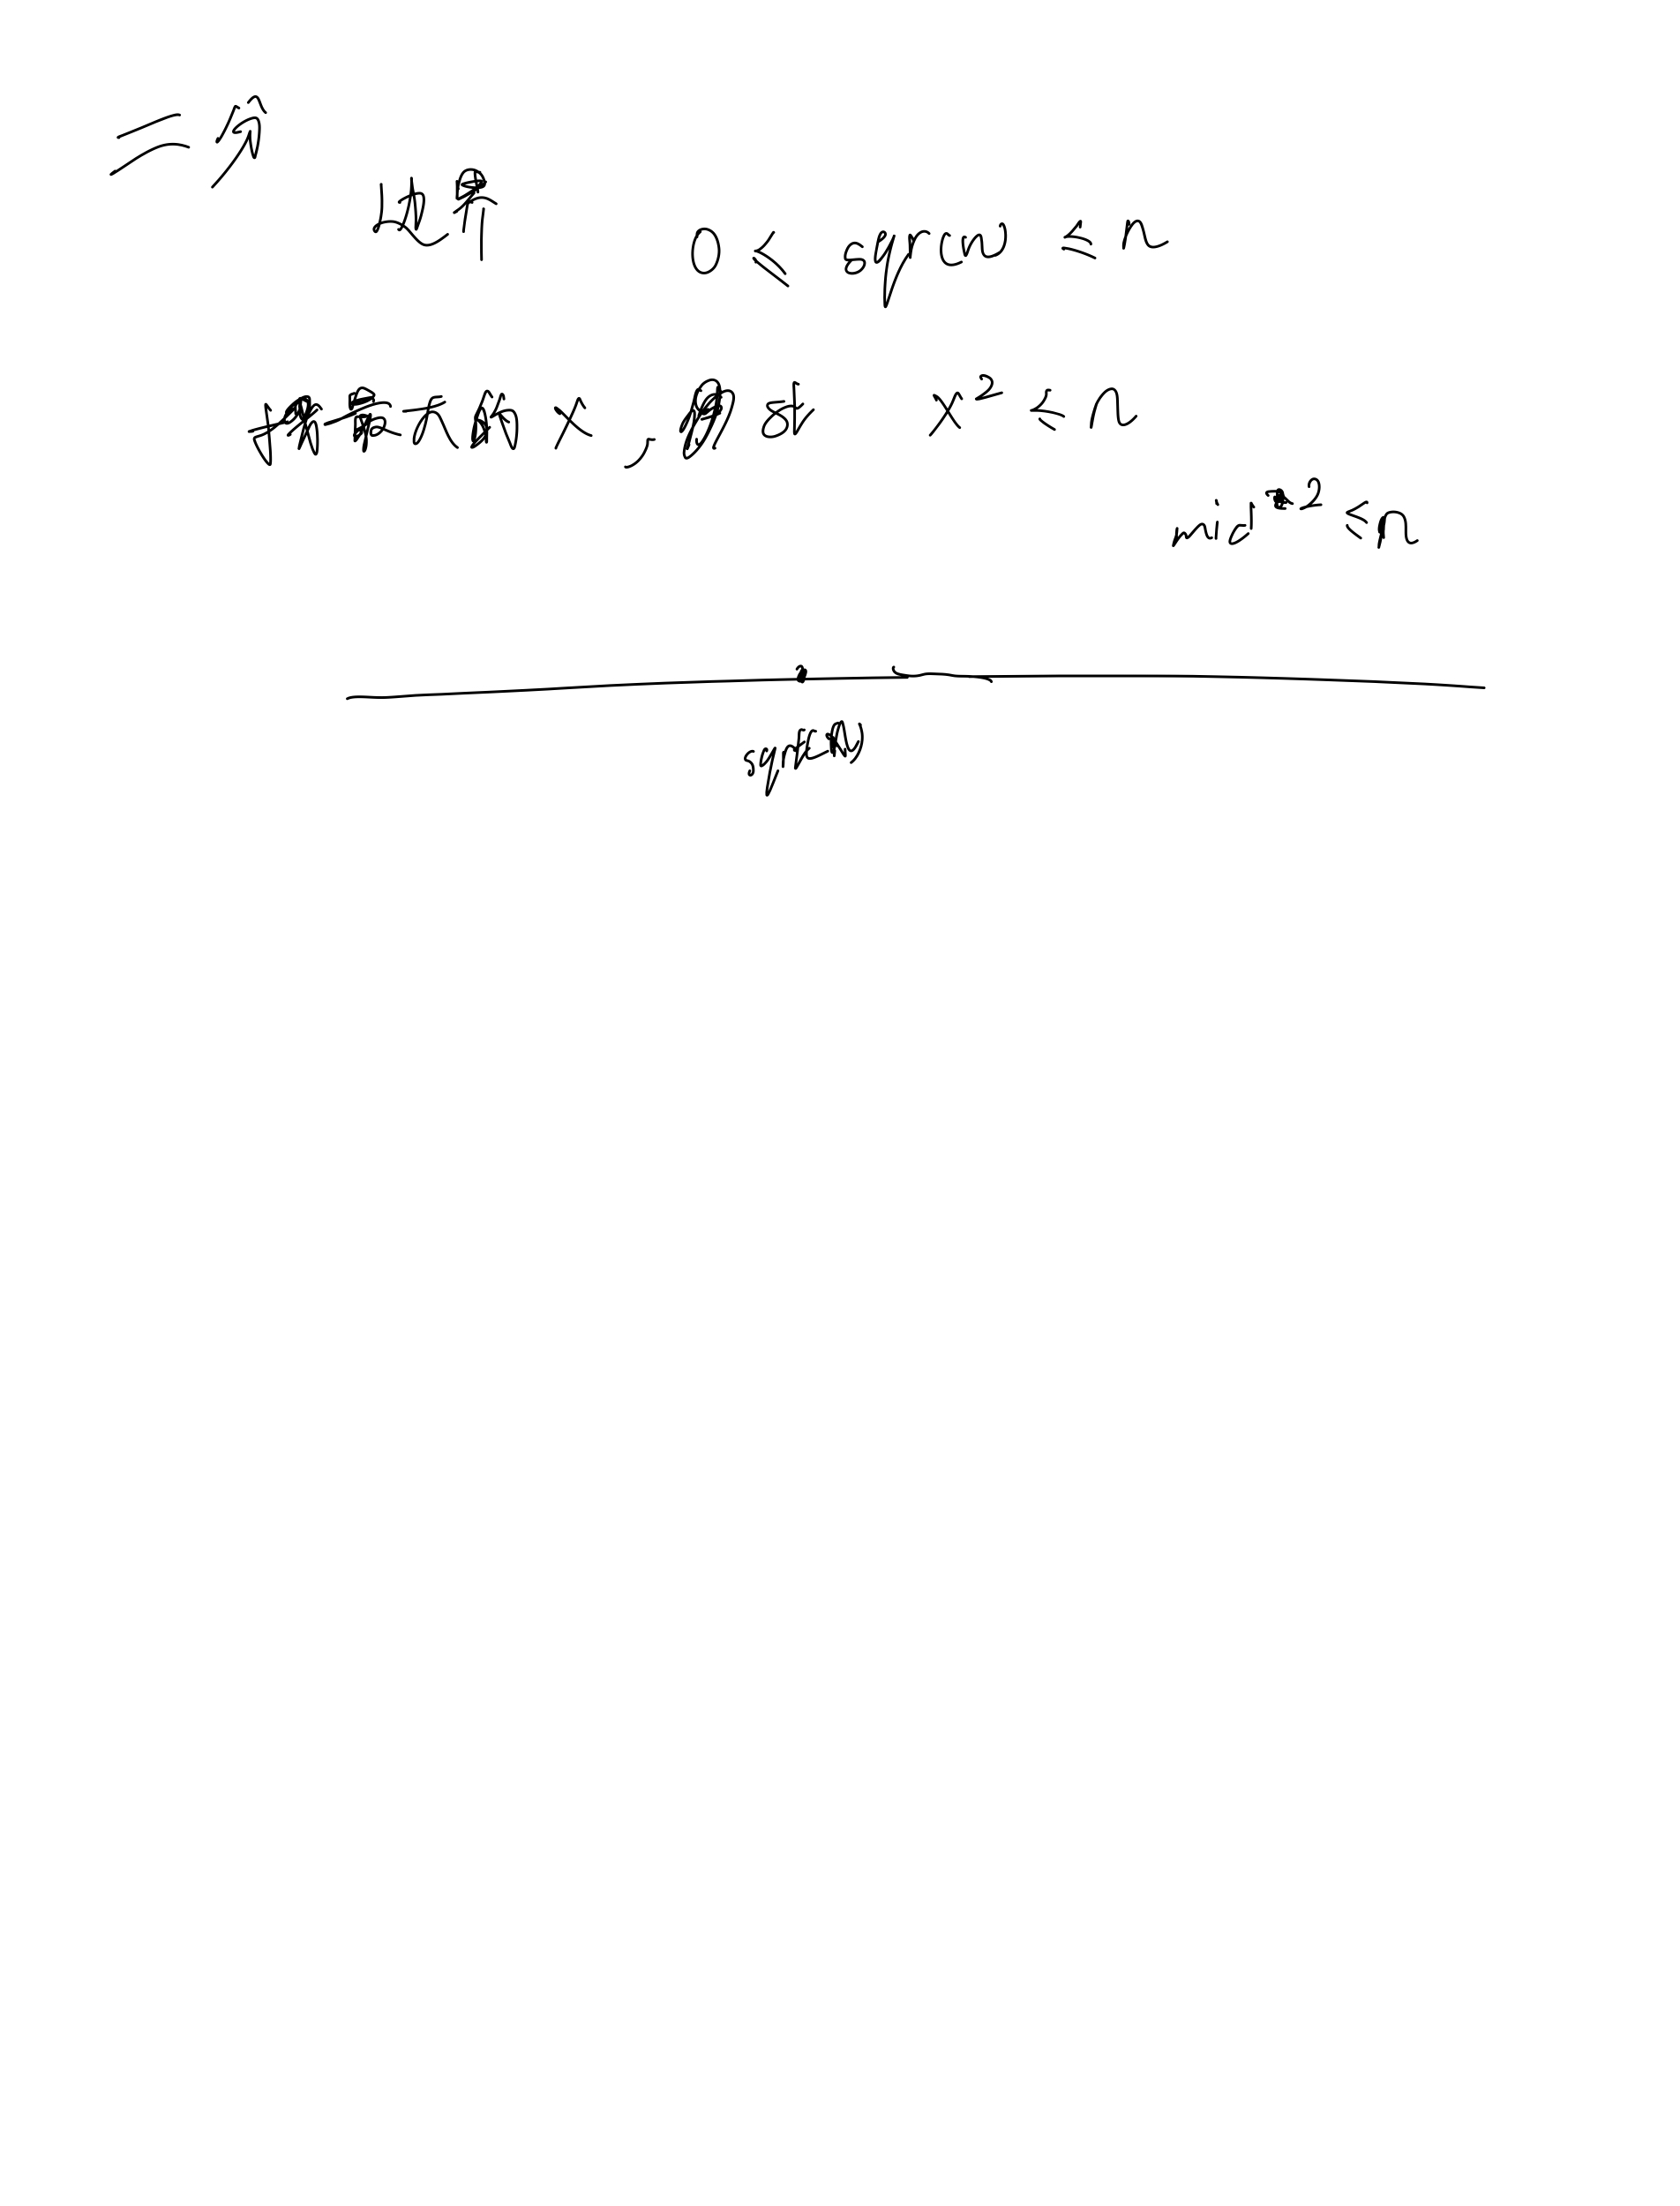 二分
边界
0 ≤ sqr(n) ≤ n
找最大的 x, 使 x² ≤ n
mid² ≤ n
sqrt(n)